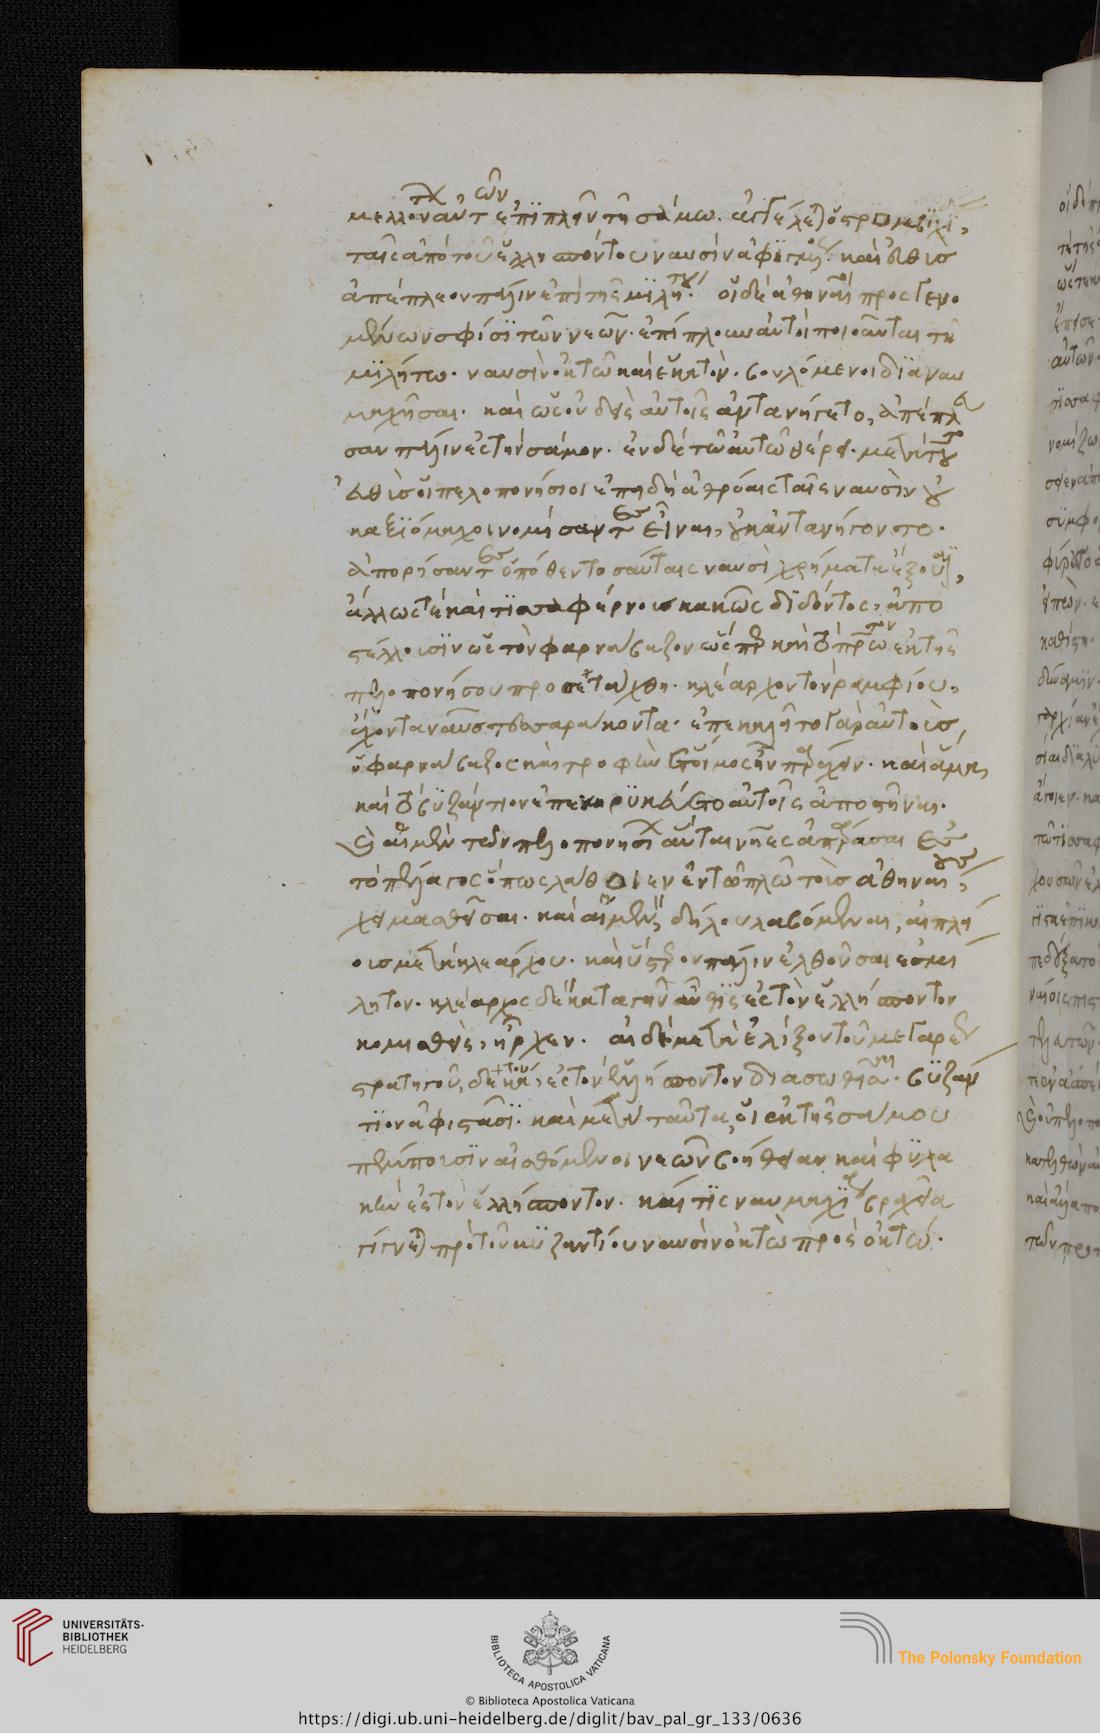 μελλόντων αὐτῶν ἐπιπλεῖν τῇ σάμω. ἀγγέλλεται ὁ στρομβιχί
ταῖς ἀπὸ τοῦ ἑλλησπόντου ναυσὶν ἀφιγμένος. καὶ εὐθὺς
ἀπέπλεον πάλιν ἐπὶ τῆς μιλήτου. οἱ δὲ ἀθηναῖοι προσγενο
μένων σφίσι τῶν νεῶν. ἐπίπλουν αὐτοὶ ποιοῦνται τῇ
μιλήτω. ναυσὶν ὀκτὼ καὶ ἑκατὸν. βουλόμενοι διαναυ
μαχῆσαι. καὶ ὡς οὐδεὶς αὐτοῖς ἀντανήγετο, ἀπέπλευ
σαν πάλιν ἐς τὴν σάμον. ἐν δὲ τῶ αὐτῶ θέρει. μετὰ τοῦτο
εὐθὺς οἱ πελοπονήσιοι ἐπειδὴ ἀθρόαις ταῖς ναυσὶν οὐ
κ ἀξιόμαχοι νομίσαντες εἶναι, οὐκ ἀντανήγοντο.
ἀπορήσαντες ὁπόθεν τοσαύταις ναυσὶ χρήματα ἕξουσι,
ἄλλως τὲ καὶ τισσαφέρνους κακῶς διδόντος, ἀπο
στέλλουσιν ὡς τὸν φαρνάβαζον ὥσπερ καὶ τὸ πρῶτον ἐκ τῆς
πελοπονήσου προσετάχθη. κλέαρχον τὸν ῥαμφίου,
ἔχοντα ναῦς τεσσαράκοντα. ἐπεκαλεῖτο γὰρ αὐτοὺς,
ὁ φαρνάβαζος. καὶ τροφὴν ἑτοῖμος ἦν παρέχειν. καὶ ἅμα
καὶ τὸ βυζάντιον ἐπεκηρυκεύετο αὐτοῖς ἀποστῆναι.
καὶ αἱ μὲν τῶν πελοπονησίων αὗται νῆες ἀπάρασαι ἐς
τὸ πέλαγος ὅπως λάθοιεν ἐν τῶ πλῶ τοὺς ἀθηναίους,
χειμασθεῖσαι. καὶ αἱ μὲν δήλου λαβόμεναι, αἱ πλεί
ους μετὰ κλεάρχου. καὶ ὕστερον πάλιν ἐλθοῦσαι ἐς μί
λητον. κλέαρχος δὲ κατὰ γῆν αὖθις ἐς τὸν ἑλλήσποντον
κομισθεὶς, ἦρχεν. αἱ δὲ μετὰ ἑλίξου τοῦ μεγαρέως
στρατηγοῦ, δέκα, ἐς τὸν ἑλλήσποντον διασωθεῖσαι. βυζάν
τιον ἀφιστᾶσι. καὶ μετὰ ταῦτα, οἱ ἐκ τῆς σάμου
πέμπουσιν αἰσθόμενοι νεῶν βοήθειαν καὶ φυλα
κὴν ἐς τὸν ἑλλήσποντον. καί τις ναυμαχία βραχεῖα
γίγνεται πρὸ τοῦ βυζαντίου ναυσὶν ὀκτὼ πρὸς ὀκτώ.
UNIVERSITÄTS-
BIBLIOTHEK
HEIDELBERG
BIBLIOTECA APOSTOLICA VATICANA
The Polonsky Foundation
© Biblioteca Apostolica Vaticana
https://digi.ub.uni-heidelberg.de/diglit/bav_pal_gr_133/0636